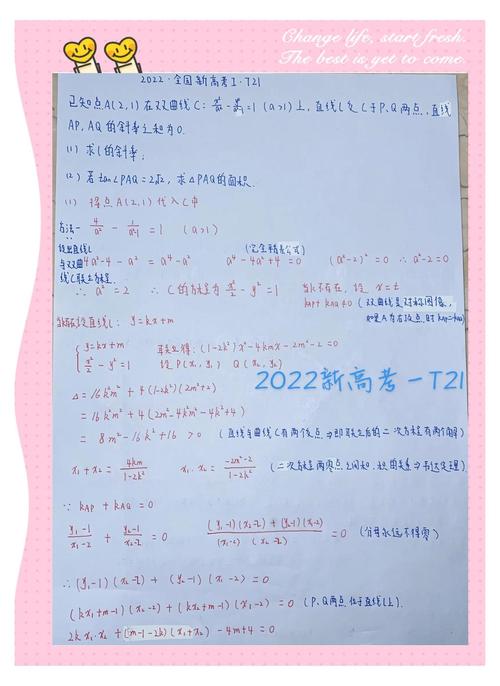 Change life, start fresh.
The best is yet to come.
2022·全国新高考I·T21
已知点A(2,1)在双曲线C: x²/a² - y²/(a²-1) = 1 (a>1)上, 直线l交C于P、Q两点, 直线
AP, AQ的斜率之和为0.
(1) 求l的斜率;
(2) 若tan∠PAQ=2√2, 求△PAQ的面积.
(1) 将点A(2,1)代入C中
方法一 4/a² - 1/(a²-1) = 1 (a>1)
设出直线l (完全平方公式)
与双曲 4a²-4-a² = a⁴-a² a⁴-4a²+4=0 (a²-2)²=0 ∴a²-2=0
线C联立方程.
∴ a²=2 ∴ C的方程为 x²/2 - y² = 1 当k不存在, 设 x=t
kAP+kAQ≠0 (双曲线是对称图像,
当k存在设直线l: y=kx+m
{ y=kx+m 联立得: (1-2k²)x²-4kmx-2m²-2=0
x²/2 - y²=1 设P(x₁,y₁) Q(x₂,y₂)
2022新高考一T21
Δ=16k²m²+4(1-2k²)(2m²+2)
=16k²m²+4(2m²-4k²m²-4k²+2)
=8m²-16k²+16>0 (直线与曲线C有两个交点⇒即联立后的二次方程有两个解)
x₁+x₂ = 4km/(1-2k²) x₁·x₂ = (-2m²-2)/(1-2k²) (二次方程两零点之间和、积的关系⇒韦达定理)
∵ kAP+kAQ=0
(y₁-1)/(x₁-2) + (y₂-1)/(x₂-2) = 0 ((y₁-1)(x₂-2)+(y₂-1)(x₁-2))/((x₁-2)(x₂-2)) = 0 (分母永远不得零)
∴(y₁-1)(x₂-2)+(y₂-1)(x₁-2)=0
(kx₁+m-1)(x₂-2)+(kx₂+m-1)(x₁-2)=0 (P、Q两点位于直线l上).
2kx₁·x₂+(m-1-2k)(x₁+x₂)-4m+4=0